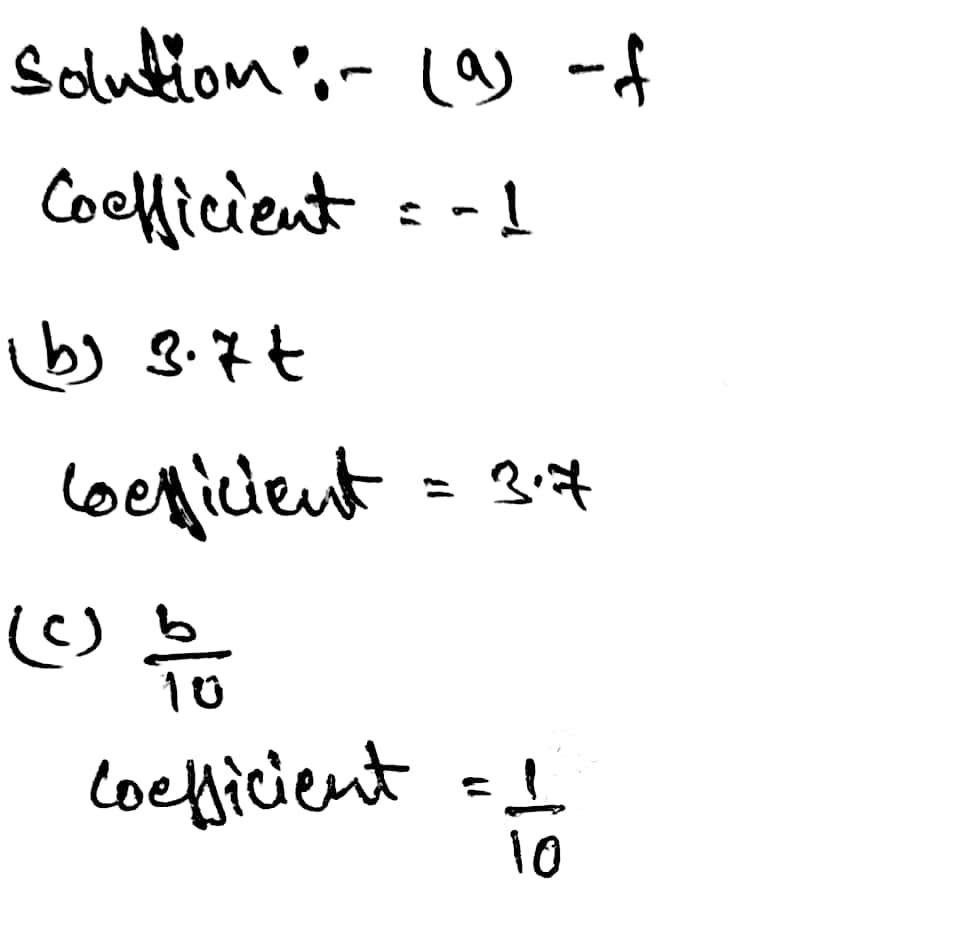 Solution :- (a) -f
Coefficient = -1
(b) 3.7t
Coefficient = 3.7
(c) b/10
Coefficient = 1/10